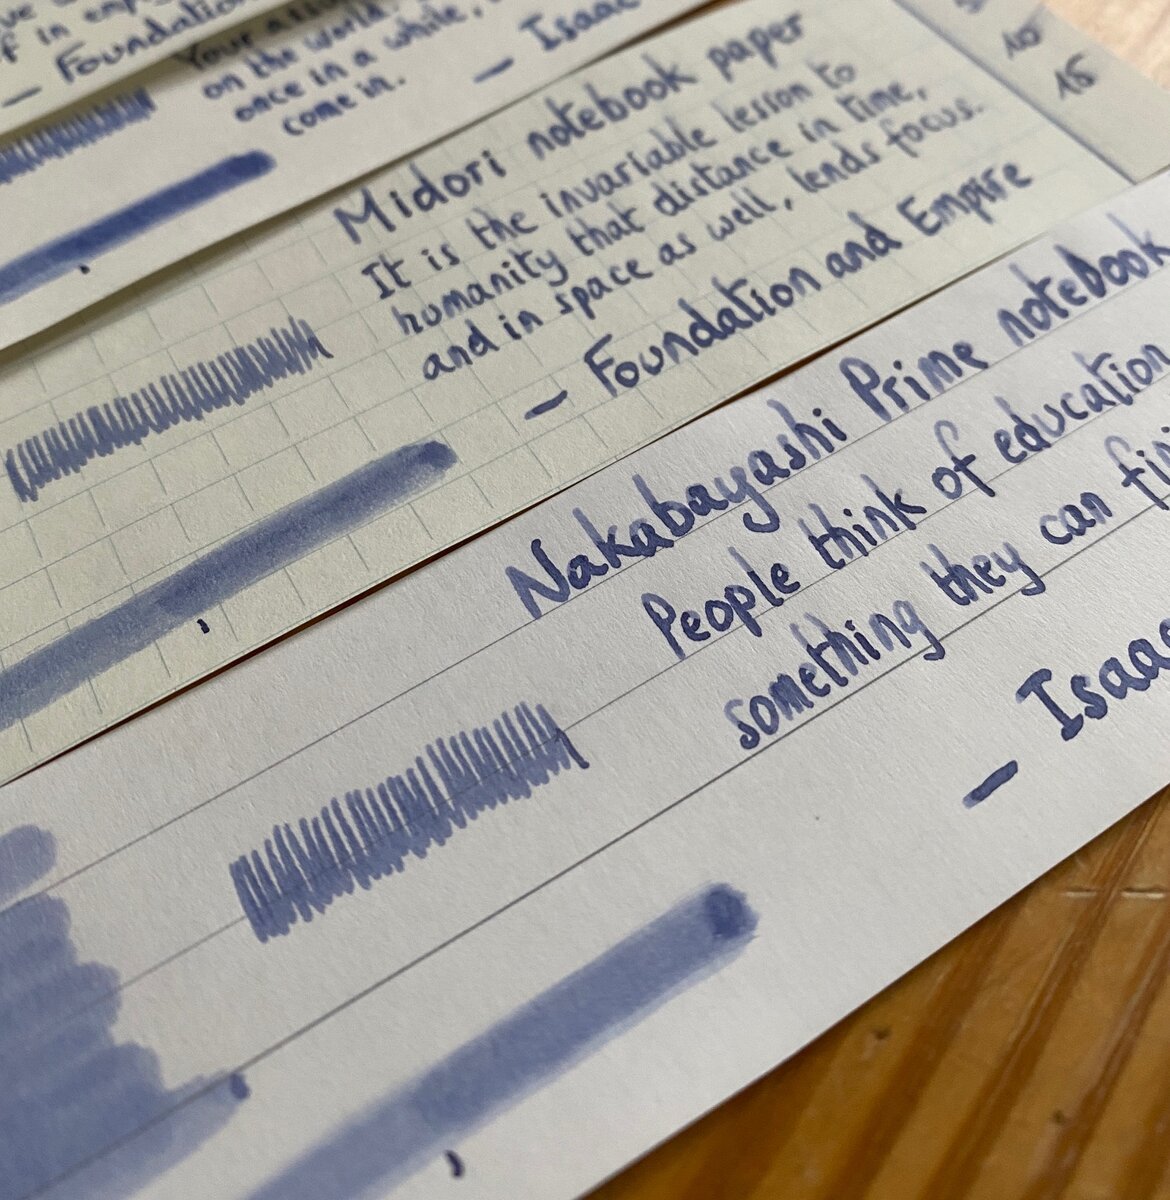 f in
— Foundation
Your
on the world.
once in a while,
come in.
— Isaac
10
15
Midori notebook paper
It is the invariable lesson to
humanity that distance in time,
and in space as well, lends focus.
— Foundation and Empire
Nakabayashi Prime notebook
People think of education
something they can
— Isaac